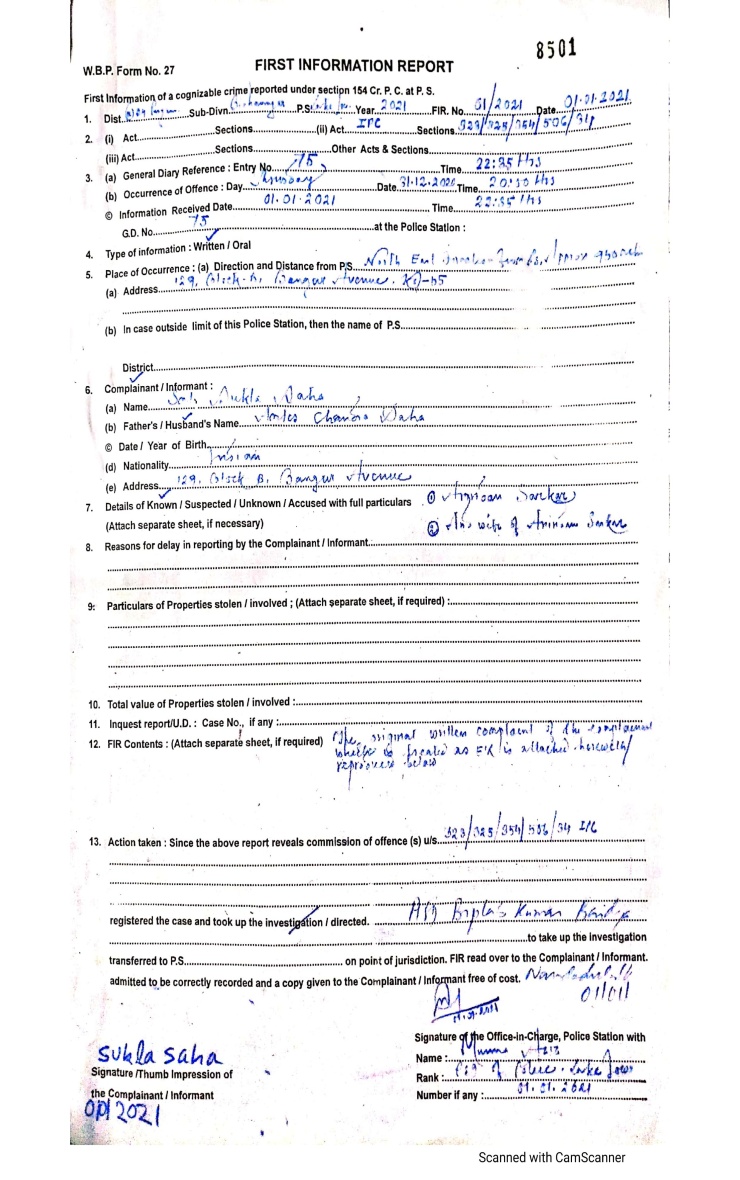 8501
W.B.P. Form No. 27
FIRST INFORMATION REPORT
First Information of a cognizable crime reported under section 154 Cr. P. C. at P. S.
1. Dist. Sub-Divn. P.S. Year 2021 FIR. No. 01/2021 Date 01.01.2021
2. (i) Act Sections (ii) Act IPC Sections 323/325/354/506/34
(iii) Act Sections Other Acts & Sections
3. (a) General Diary Reference : Entry No. 75 Time 22:35 Hrs
(b) Occurrence of Offence : Day Date 31-12-2020 Time 20:30 Hrs
© Information Received Date 01.01.2021 Time 22:35 Hrs
G.D. No. 75 at the Police Station :
4. Type of information : Written / Oral
5. Place of Occurrence : (a) Direction and Distance from P.S. North East
(a) Address 129, Block-B, Bangur Avenue, Kol-55
(b) In case outside limit of this Police Station, then the name of P.S.
District
6. Complainant / Informant :
(a) Name Sukla Saha
(b) Father's / Husband's Name Chandra Saha
© Date / Year of Birth
(d) Nationality Indian
(e) Address 129, Block B, Bangur Avenue
7. Details of Known / Suspected / Unknown / Accused with full particulars ① Sarkar
(Attach separate sheet, if necessary) ② wife of Arindam Sarkar
8. Reasons for delay in reporting by the Complainant / Informant.:
9: Particulars of Properties stolen / involved ; (Attach separate sheet, if required) :
10. Total value of Properties stolen / involved :
11. Inquest report/U.D. : Case No., if any :
12. FIR Contents : (Attach separate sheet, if required) The original written complaint of the complainant
which is treated as FIR is attached herewith/
reproduced below
13. Action taken : Since the above report reveals commission of offence (s) u/s. 323/325/354/506/34 IPC
registered the case and took up the investigation / directed. ASI Biplab Kumar
to take up the investigation
transferred to P.S. on point of jurisdiction. FIR read over to the Complainant / Informant.
admitted to be correctly recorded and a copy given to the Complainant / Informant free of cost.
01/01/
01.01.2021
Signature of the Office-in-Charge, Police Station with
Name :
Rank : of Police. Lake Town
Number if any : 01.01.2021
Sukla Saha
Signature /Thumb Impression of
the Complainant / Informant
2021
Scanned with CamScanner